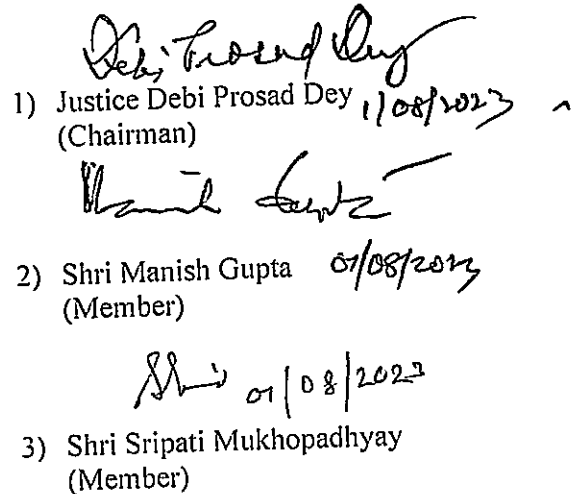 Debi Prosad Dey
1) Justice Debi Prosad Dey 1/08/2023
(Chairman)
Manish Gupta
2) Shri Manish Gupta 01/08/2023
(Member)
01/08/2023
3) Shri Sripati Mukhopadhyay
(Member)